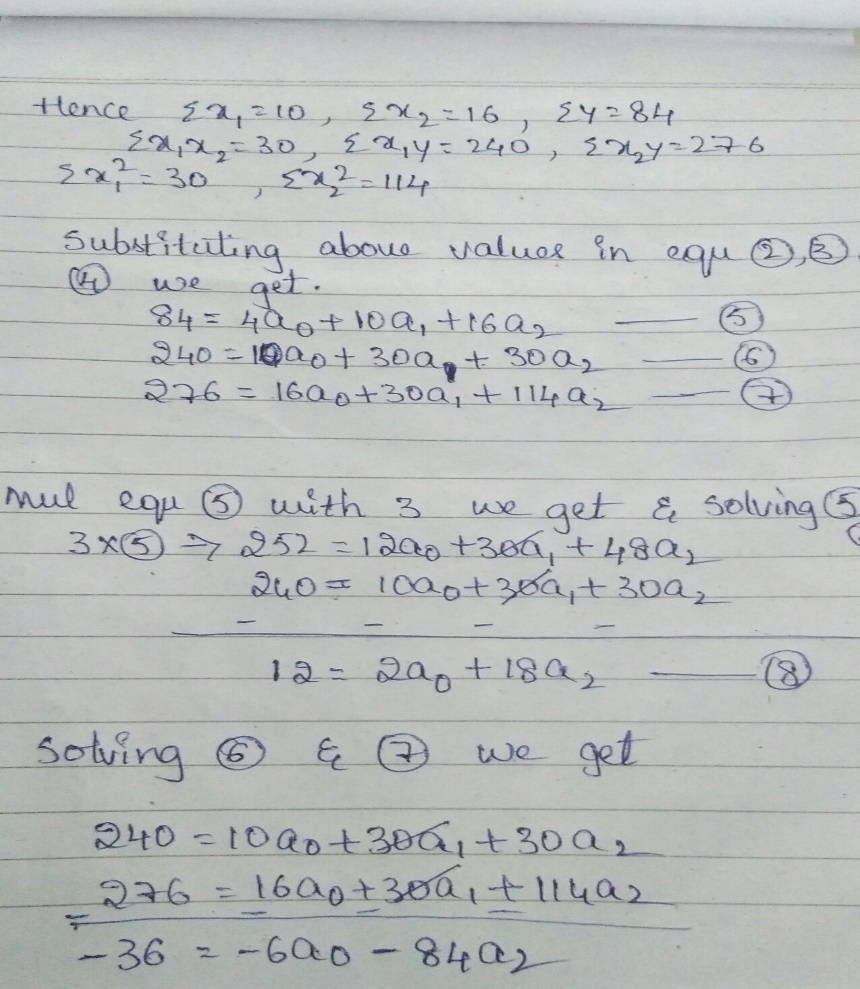 Hence Σx₁=10, Σx₂=16, Σy=84
Σx₁x₂=30, Σx₁y=240, Σx₂y=276
Σx₁²=30, Σx₂²=114
Substituting above values in equ ②,③
④ we get.
84=4a₀+10a₁+16a₂ — ⑤
240=10a₀+30a₁+30a₂ — ⑥
276=16a₀+30a₁+114a₂ — ⑦
Mul equ ⑤ with 3 we get & solving ⑤
3×⑤ ⇒ 252=12a₀+30a₁+48a₂
240=10a₀+30a₁+30a₂
− − − −
12=2a₀+18a₂ — ⑧
Solving ⑥ & ⑦ we get
240=10a₀+30a₁+30a₂
276=16a₀+30a₁+114a₂
− − − −
−36=−6a₀−84a₂